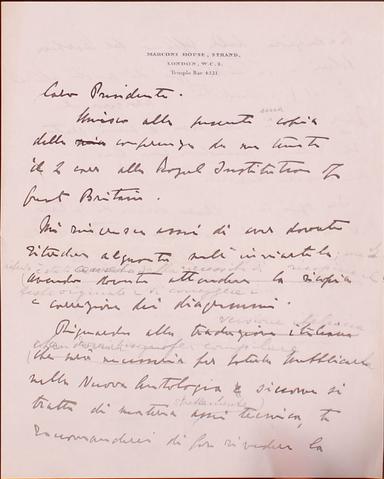 MARCONI HOUSE, STRAND,
LONDON, W.C.2.
Temple Bar 4321
Caro Presidente.
una
Unisco alla presente copia
della conferenza da me tenuta
il 2 corr alla Royal Institution of
great Britain.
Mi rincresce assai di aver dovuto
ritardare alquanto nell' inviartela
avendo dovuto attendere la ricopia
e correzione dei diagrammi.
versione italiana
Riguardo alla traduzione italiana
che sarà necessaria per poterla pubblicare
nella Nuova Antologia e siccome si
strettamente
tratta di materia assai tecnica, ti
raccomanderei di far rivedere la